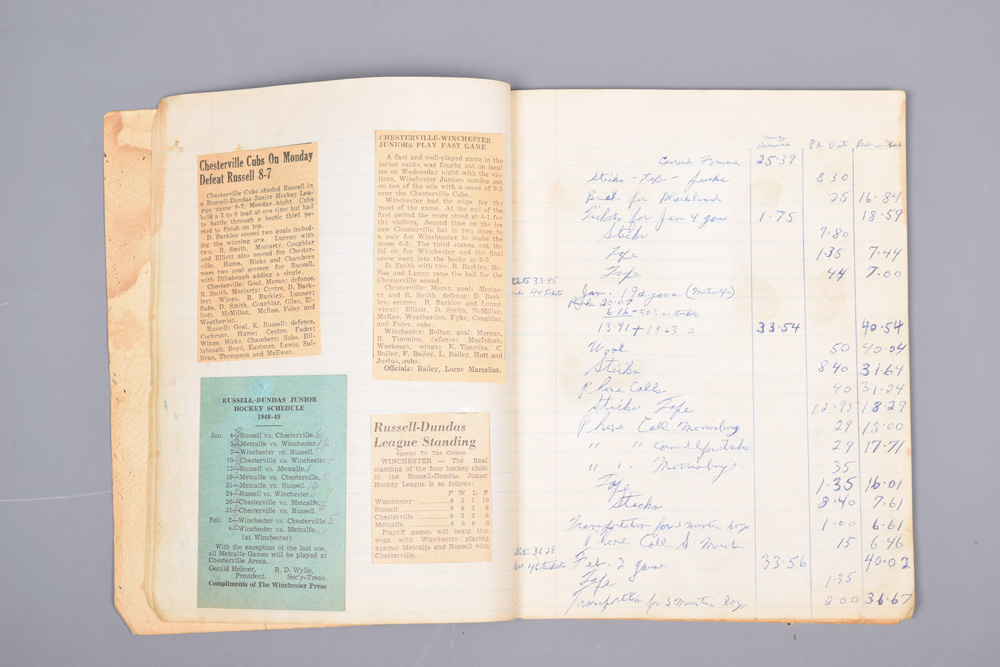 Chesterville Cubs On Monday
Defeat Russell 8-7
Chesterville Cubs shaded Russell in
a Russell-Dundas Junior Hockey Lea-
gue game 8-7, Monday night. Cubs
held a 3 to 0 lead at one time but had
to battle through a hectic third pe-
riod to finish on top.
D. Barkley scored two goals includ-
ing the winning one. Lunney with
two, R. Smith, Moriarty, Coughlar
and Elliott also scored for Chester-
ville. Hume, Hicks and Chambers
were two goal scorers for Russell,
with Dillabough adding a single.
Chesterville: Goal, Moran; defence,
R. Smith, Moriarty; Centre, D. Bark-
ley; Wings, B. Barkley, Lunney;
Subs, D. Smith, Coughlar, Giles, El-
liott, McMillan, McRae, Foley and
Weatherton.
Russell: Goal, K. Russell; defence,
Cochrane, Hume; Centre, Fader;
Wings, Hicks, Chambers; Subs, Dil-
labough, Boyd, Eastman, Lewis, Sul-
livan, Thompson and McEwen.
CHESTERVILLE-WINCHESTER
JUNIORS PLAY FAST GAME
A fast and well-played game in the
junior ranks was fought out on local
ice on Wednesday night with the vis-
itors, Winchester Juniors coming out
on top of the pile with a score of 9-5
over the Chesterville Cubs.
Winchester had the edge for the
most of the game. At the end of the
first period the score stood at 4-1 for
the visitors. Second time on the ice
saw Chesterville bat in two more to
a pair for Winchester to make the
score 6-3. The third stanza put the
lid on for Winchester and the final
score went into the books at 9-5.
D. Smith with two, B. Barkley, Mc-
Rae and Lunny rang the bell for the
Chesterville squad.
Chesterville: Moran, goal; Moriar-
ty and R. Smith, defence; D. Bark-
ley, centre; B. Barkley and Lunny,
wings; Elliott, D. Smith, McMill-
an, McRae, Weatherton, Pyke, Coughlar,
and Foley, subs.
Winchester: Bolton, goal; Morgan,
R. Timmins, defence; MacIntosh,
Workman, wings; K. Timmins, C.
Bailey, F. Bailey, L. Bailey, Hutt and
Justus, subs.
Officials: Bailey, Lorne Marcellus.
RUSSELL-DUNDAS JUNIOR
HOCKEY SCHEDULE
1948-49
Jan. Russell vs. Chesterville
Metcalfe vs. Winchester
Winchester vs. Russell
10—Chesterville vs. Winchester
12—Russell vs. Metcalfe
19—Metcalfe vs. Chesterville
21—Metcalfe vs. Russell
24—Russell vs. Winchester
26—Chesterville vs. Metcalfe
31—Chesterville vs. Russell
Feb. 2—Winchester vs. Chesterville
Winchester vs. Metcalfe
(at Winchester)
With the exception of the last one,
all Metcalfe Games will be played at
Chesterville Arena.
Gerald Helmer, R. D. Wylie,
President. Sec'y-Treas.
Compliments of The Winchester Press
Russell-Dundas
League Standing
Special To The Citizen
WINCHESTER — The final
standing of the four hockey clubs
in the Russell-Dundas Junior
Hockey League is as follows:
P W L P
Winchester 6 5 1 10
Russell 6 4 2 8
Chesterville 6 3 3 6
Metcalfe 6 0 6 0
Playoff games will begin this
week with Winchester playing
against Metcalfe and Russell with
Chesterville.
Money
Receive Pd. Out Bal on Hand
25.39
Sticks - Tape - Pucks 8 30
25 16.84
Tickets for Jan 4 game 1.75 18.59
Sticks 9.80
Tape 1.35 7.44
Tape 44 7.00
33.45
44 tickets
Jan. 19 game (Metcalfe)
20.07
6.16
13.91 + 19.63 = 33.54 40.54
Wool 50 40.04
Sticks 8 40 31.64
Phone Calls 40 31.24
Sticks Tape 12.95 18.29
Phone Call Morrisburg 29 18.00
" " 29 17.71
" " Morrisburg 35
Tape 1.35 16.01
Sticks 8.40 7.61
Transportation for 1.00 6.61
Phone Call S. 15 6.46
36.25
46 tickets
Feb. 2 game 33.56 40.02
Tape 1.35
Transportation for 2.00 36.67